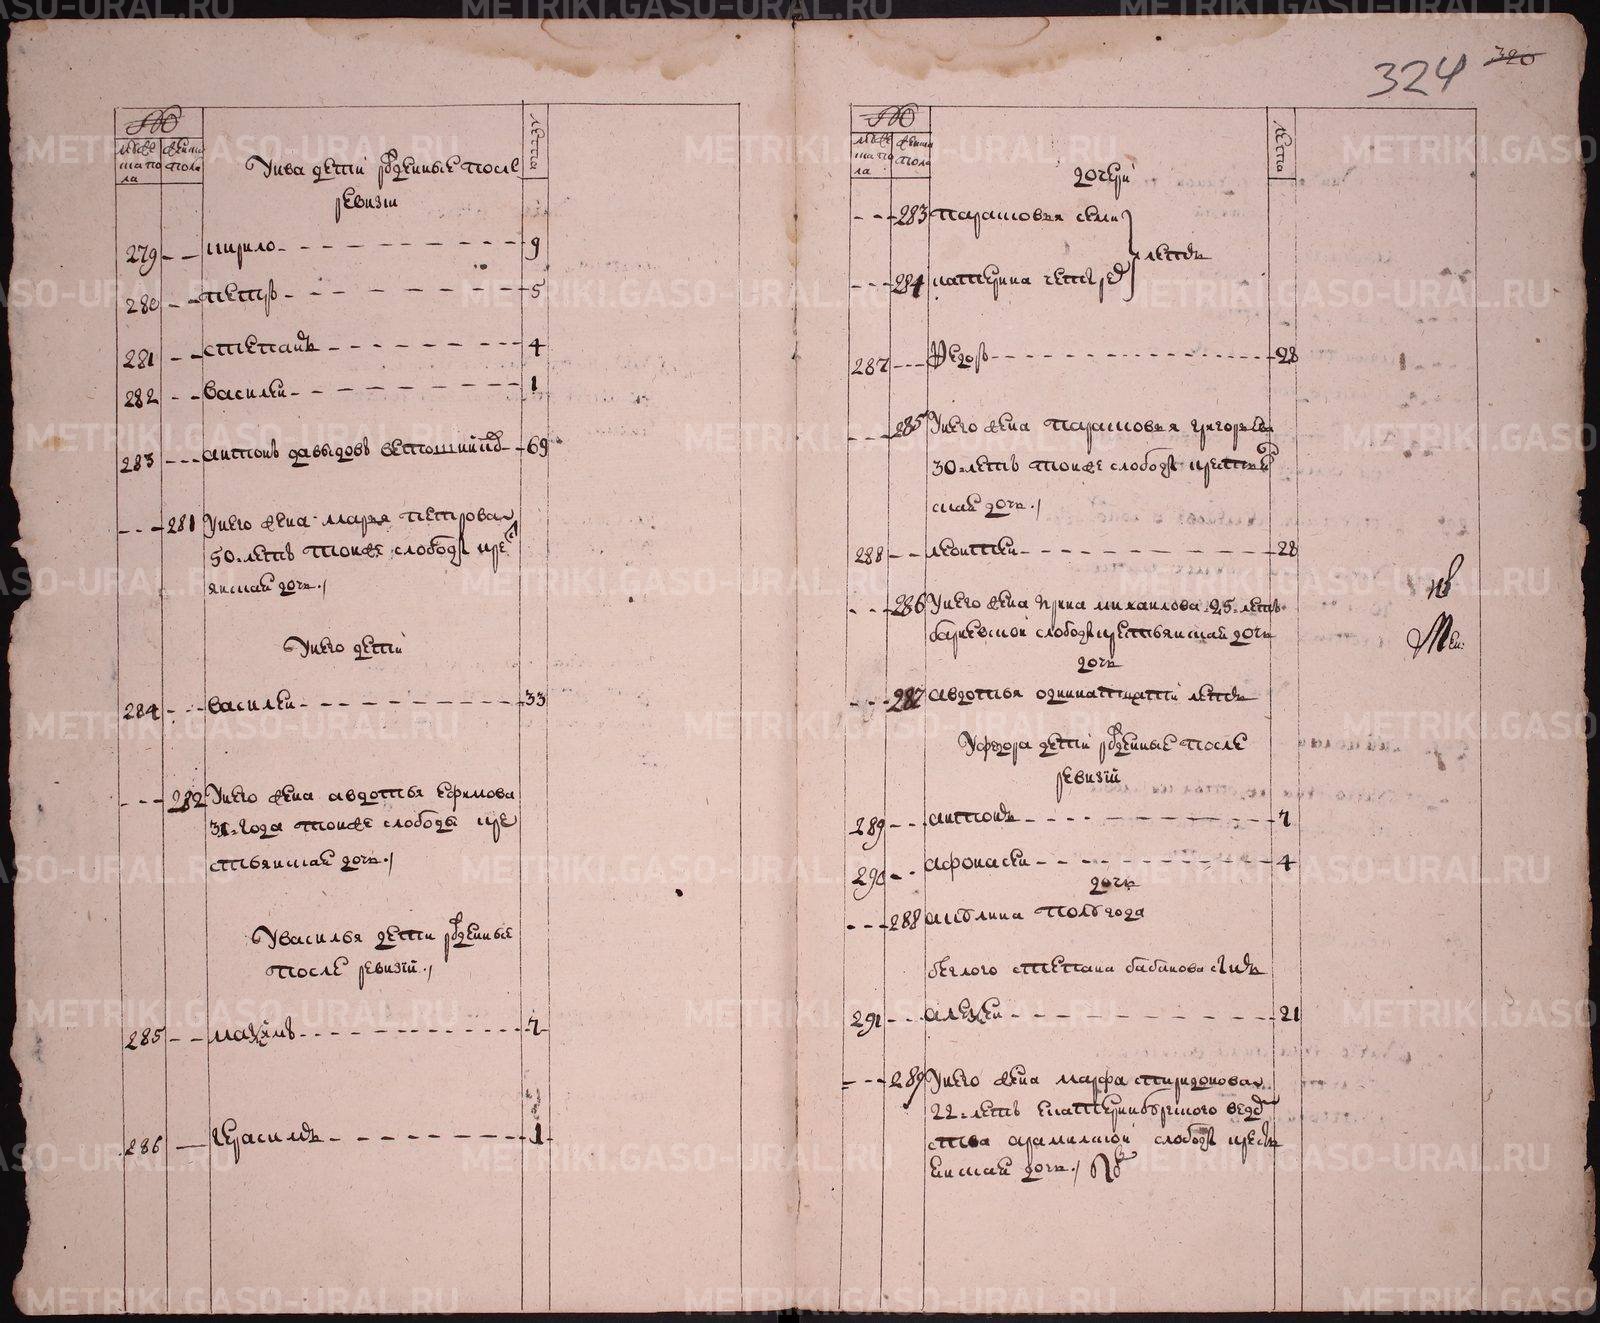 324 320
№
мужеска пола
женска пола
лета
Уива дети рожденные после
ревизии
279 — кирило 9
280 — петръ 5
281 — степанъ 4
282 — василеи 1
283 — антонъ давыдовъ 69
281 Унего жена марья петрова
50 летъ тоиже слободы кре
янская дочь
Унего дети
284 — василеи 33
282 Унего жена авдотья ефимова
31 года тоиже слободы кре
стьянская дочь
Увасилья дети рожденные
после ревизии
285 — маѯимъ 7
286 — герасимъ 1
№
мужеска пола
женска пола
лета
дочери
283 парасковья семи
летъ
284 катерина четырех
287 — Федоръ 28
285 Унего жена парасковья григорьева
30 летъ тоиже слободы крестьян
ская дочь
288 — леонтеи 28
286 Унего жена ирина михаилова 25 летъ
слободы крестьянская дочь
дочь
287 авдотья одиннатцати летъ
Уфедора дети рожденные после
ревизии
289 — антонъ 7
290 — афонасеи 4
дочь
288 акилина полгода
беглого степана бабинова сынъ
291 — алеѯеи 21
289 Унего жена марфа спиридонова
22 летъ екатеринбурского ведом
ства арамилскои слободы кресть
янская дочь
METRIKI.GASO-URAL.RU